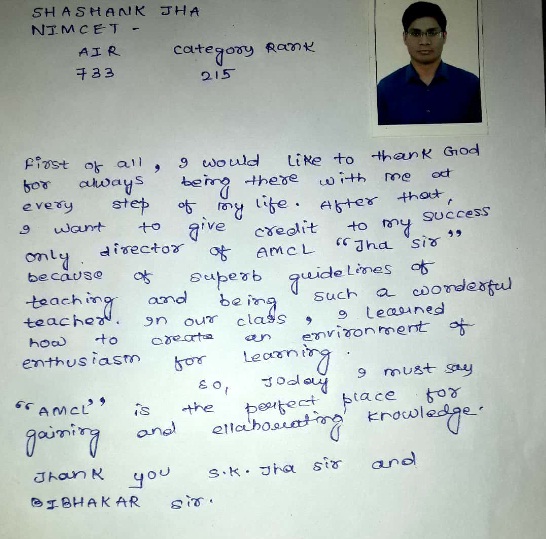 SHASHANK JHA
NIMCET -
AIR category Rank
733 215
First of all, I would like to thank God
for always being there with me at
every step of my life. After that,
I want to give credit to my success
only director of AMCL "Jha sir"
because of superb guidelines of
teaching and being such a wonderful
teacher. In our class, I learned
how to create an environment of
enthusiasm for Learning.
So, Today I must say
"AMCL" is the perfect place for
gaining and ellaborating knowledge.
Thank you S.K. Jha sir and
BIBHAKAR sir.